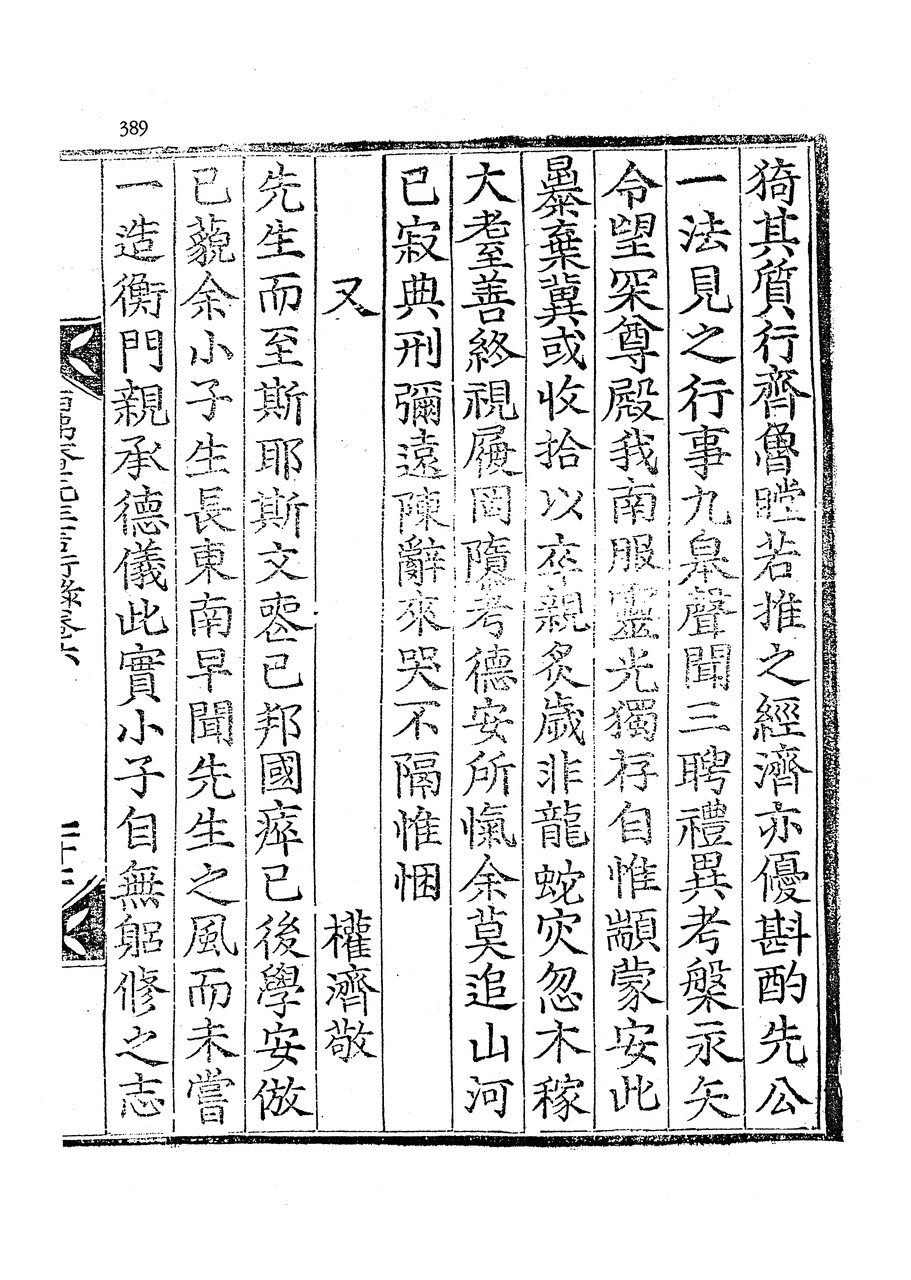 389
猗其質行齊魯瞠若推之經濟亦優斟酌先公
一法見之行事九臯聲聞三聘禮異考槃永矢
令望罙尊殿我南服靈光獨存自惟顓蒙安此
暴棄冀或收拾以卒親炙歲非龍蛇灾忽木稼
大老至善終視履岡隳考德安所愾余莫追山河
已寂典刑彌遠陳辭來哭不隔惟悃
又
權濟敬
先生而至斯耶斯文喪已邦國瘁已後學安倣
已藐余小子生長東南早聞先生之風而未嘗
一造衡門親承德儀此實小子自無躬修之志